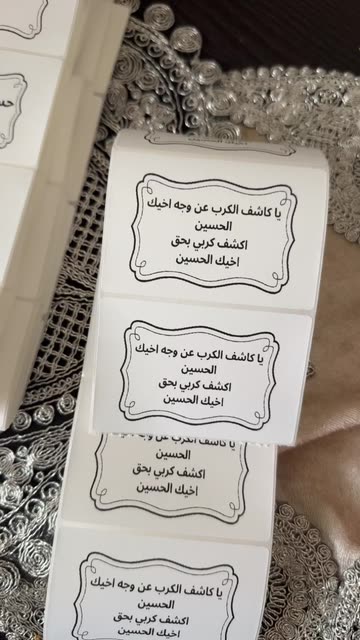 يا كاشف الكرب عن وجه اخيك
الحسين
اكشف كربي بحق
اخيك الحسين
يا كاشف الكرب عن وجه اخيك
الحسين
اكشف كربي بحق
اخيك الحسين
يا كاشف الكرب عن وجه اخيك
الحسين
اكشف كربي بحق
اخيك الحسين
يا كاشف الكرب عن وجه اخيك
الحسين
اكشف كربي بحق
اخيك الحسين